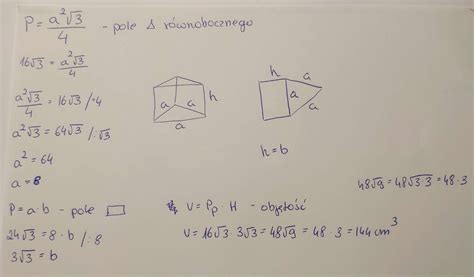 P = a²√3/4 - pole Δ równobocznego
16√3 = a²√3/4
a²√3/4 = 16√3 /·4
a²√3 = 64√3 /:√3
a² = 64
a = 8
a a a h
h a a a
h = b
P = a·b - pole ▭
24√3 = 8·b /:8
3√3 = b
V = Pp · H - objętość
V = 16√3 · 3√3 = 48√9 = 48 · 3 = 144 cm³
48√9 = 48√3·3 = 48·3